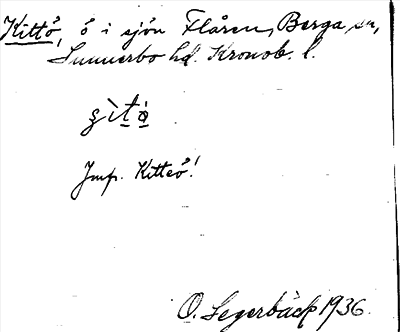 Kittö, ö i sjön Flåren, Berga sn,
Sunnerbo hd. Kronob. l.
Jmf. Kitteö!
O. Segerbäck 1936.